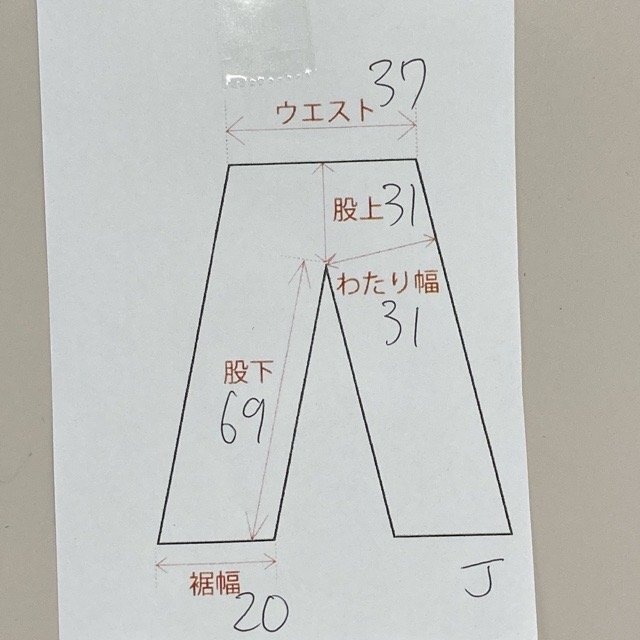 ウエスト 37
股上 31
わたり幅
31
股下
69
裾幅
20
J